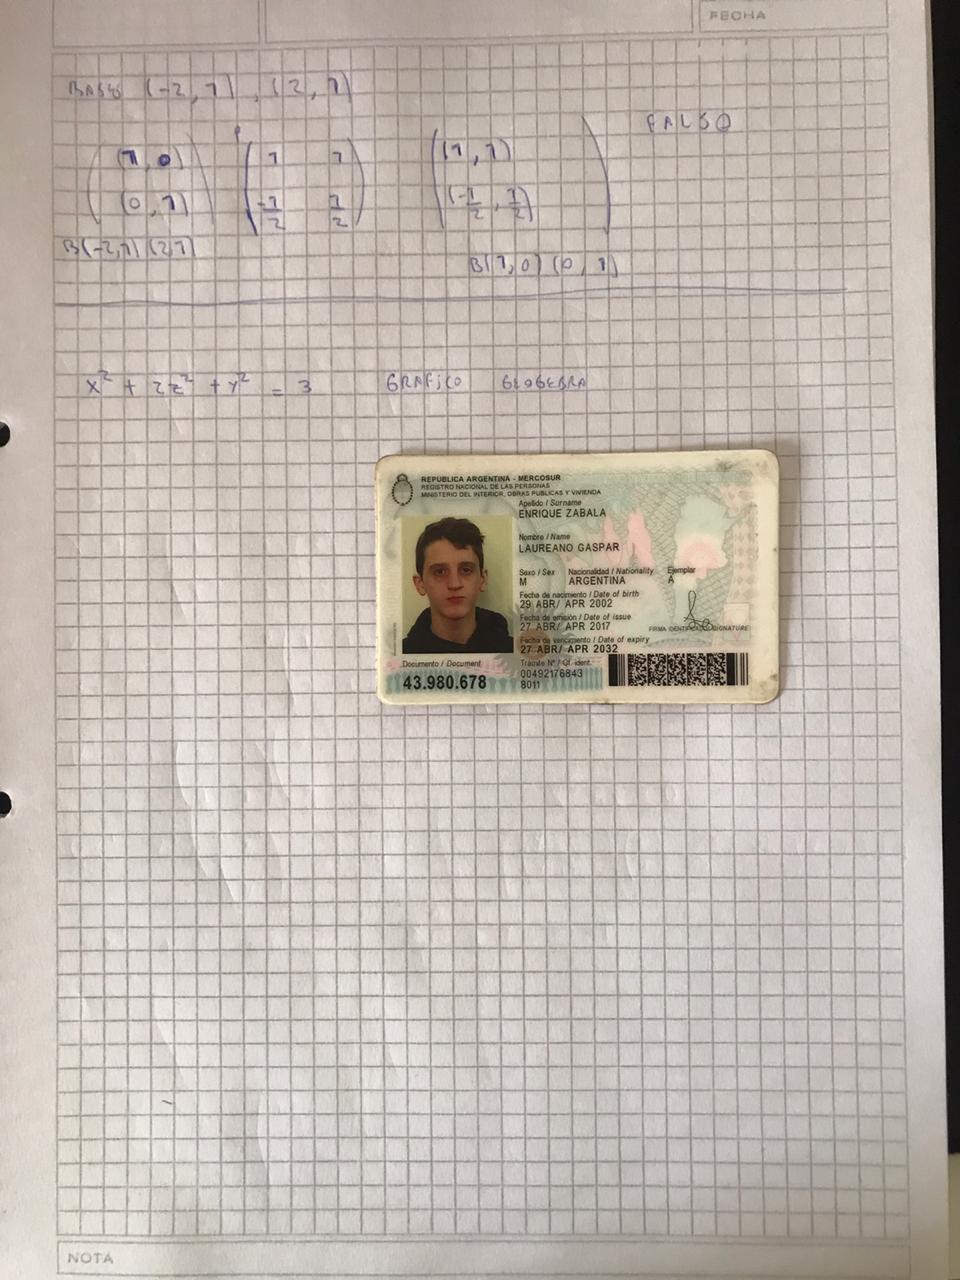 FECHA
BASES (-2,1), (2,1)
FALSO
(1,0) 1 1 (1,1)
(0,1) -1/2 1/2 (-1/2, 1/2)
B(-2,1)(2,1)
B(1,0)(0,1)
x² + 2z² + y² = 3 GRAFICO GEOGEBRA
REPUBLICA ARGENTINA - MERCOSUR
REGISTRO NACIONAL DE LAS PERSONAS
MINISTERIO DEL INTERIOR, OBRAS PUBLICAS Y VIVIENDA
Apellido / Surname
ENRIQUE ZABALA
Nombre / Name
LAUREANO GASPAR
Sexo / Sex Nacionalidad / Nationality Ejemplar
M ARGENTINA A
Fecha de nacimiento / Date of birth
29 ABR/ APR 2002
Fecha de emisión / Date of issue
27 ABR/ APR 2017
FIRMA IDENTIFICADO / SIGNATURE
Fecha de vencimiento / Date of expiry
27 ABR/ APR 2032
Documento / Document
43.980.678
Trámite Nº / Of. ident.
00492176843
8011
NOTA